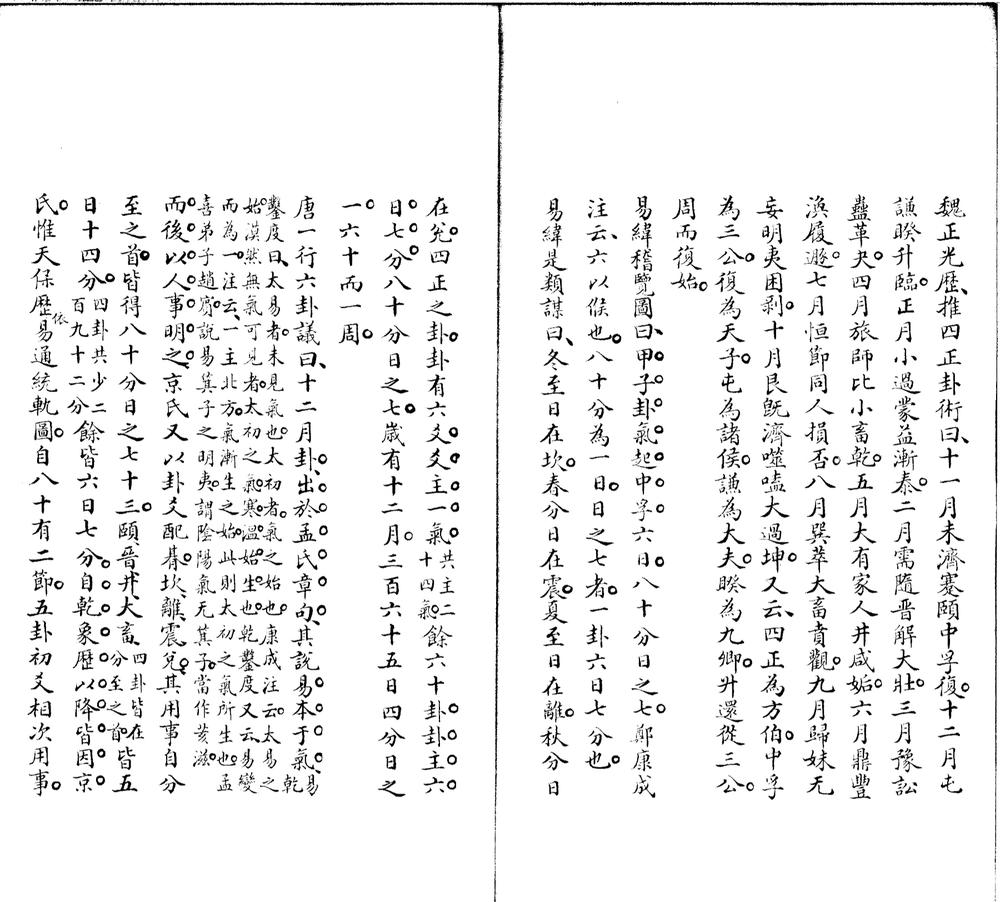 魏正光歷、推四正卦術曰、十一月未濟蹇頤中孚復。十二月屯
謙睽升臨。正月小過蒙益漸泰。二月需隨晉解大壯。三月豫訟
蠱革夬。四月旅師比小畜乾。五月大有家人井咸姤。六月鼎豐
渙履遯。七月恒節同人損否。八月巽萃大畜賁觀。九月歸妹无
妄明夷困剥。十月艮旣濟噬嗑大過坤。又云、四正為方伯。中孚
為三公。復為天子。屯為諸侯。謙為大夫。睽為九卿。升還從三公。
周而復始。
易緯稽覽圖曰、甲子卦氣起中孚。六日八十分日之七。鄭康成
注云、六以候也。八十分為一日。日之七者。一卦六日七分也。
易緯是類謀曰、冬至日在坎。春分日在震。夏至日在離。秋分日
在兌。四正之卦。卦有六爻。爻主一氣。共主二十四氣。餘六十卦。卦主六
日七分。八十分日之七。歲有十二月。三百六十五日四分日之
一。六十而一周。
唐一行六卦議曰、十二月卦、出於孟氏章句、其說易本于氣、易乾
鑿度曰、太易者。未見氣也。太初者。氣之始也。康成注云太易之
始。漠然無氣可見者。太初之氣。寒溫始生也。乾鑿度又云、易變
而為一。注云、一主北方。氣漸生之始。此則太初之氣所生也。孟
喜弟子趙賓說易箕子之明夷。謂陰陽氣无箕子。當作荄滋。
而後以人事明之、京氏又以卦爻配朞、坎、離、震、兌、其用事自分
至之首。皆得八十分日之七十三。頤、晉、丼、大畜、四卦皆在分至之前。皆五
日十四分。四卦共少二百九十二分餘皆六日七分。自乾象歷以降。皆因京
氏。惟天保歷依易通統軌圖。自八十有二節。五卦初爻相次用事。